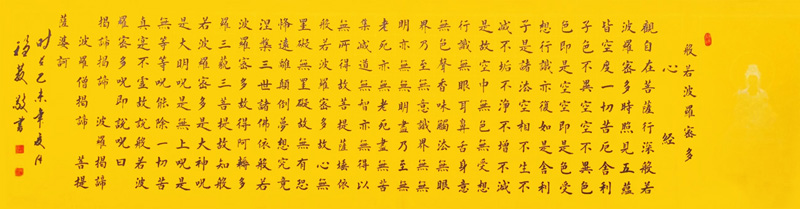 般若波羅蜜多
心 經
觀自在菩薩行深般若
波羅蜜多時照見五蘊
皆空度一切苦厄舍利
子色不異空空不異色
色即是空空即是色受
想行識亦復如是舍利
子是諸法空相不生不
滅不垢不淨不增不減
是故空中無色無受想
行識無眼耳鼻舌身意
無色聲香味觸法無眼
界乃至無意識界無無
明亦無無明盡乃至無
老死亦無老死盡無苦
集滅道無智亦無得以
無所得故菩提薩埵依
般若波羅蜜多故心無
罣礙無罣礙故無有恐
怖遠離顛倒夢想究竟
涅槃三世諸佛依般若
波羅蜜多故得阿耨多
羅三藐三菩提故知般
若波羅蜜多是大神咒
是大明咒是無上咒是
無等等咒能除一切苦
真實不虛故說般若波
羅蜜多咒即說咒曰
揭諦揭諦 波羅揭諦
波羅僧揭諦 菩提
薩婆訶
未年夏月
敬書